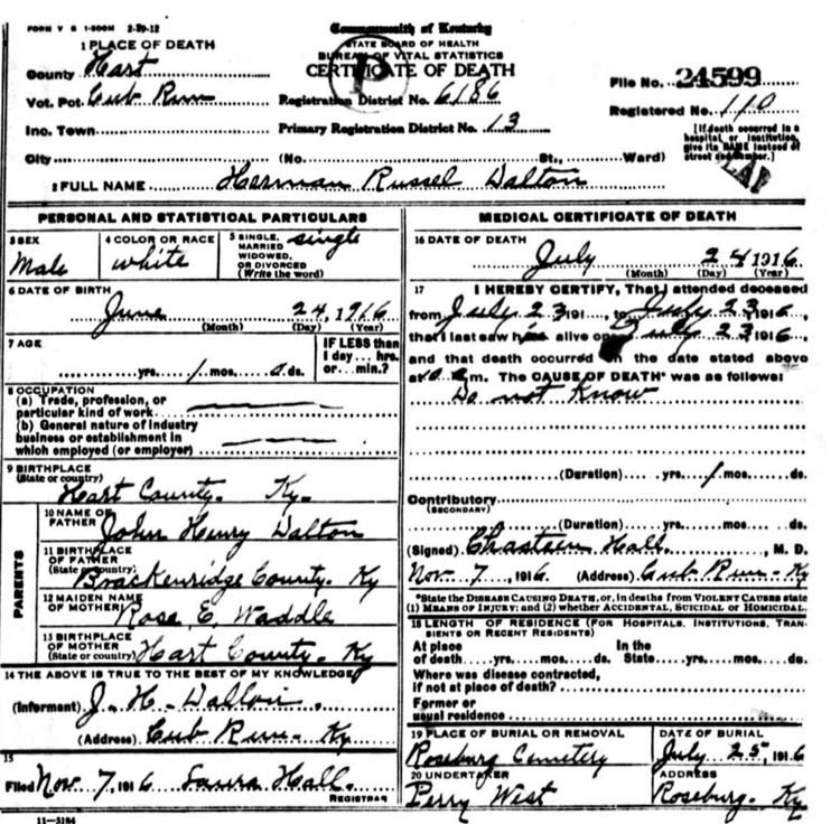 FORM V S 1-500M 2-29-12
Commonwealth of Kentucky
STATE BOARD OF HEALTH
BUREAU OF VITAL STATISTICS
CERTIFICATE OF DEATH
1 PLACE OF DEATH
County Hart
Vot. Pct. Cub Run
Inc. Town
City (No. St., Ward)
Registration District No. 6186
Primary Registration District No. 13
File No. 24599
Registered No. 110
[If death occurred in a hospital or institution, give its NAME instead of street and number.]
2 FULL NAME Herman Russel Dalton
PERSONAL AND STATISTICAL PARTICULARS
3 SEX Male
4 COLOR OR RACE white
5 SINGLE, MARRIED WIDOWED, OR DIVORCED (Write the word) single
6 DATE OF BIRTH
June 24, 1916
(Month) (Day) (Year)
7 AGE
yrs. 1 mos. 0 ds.
IF LESS than 1 day... hrs. or... min.?
8 OCCUPATION
(a) Trade, profession, or
particular kind of work
(b) General nature of industry
business or establishment in
which employed (or employer)
9 BIRTHPLACE
(State or country)
Hart County. Ky.
PARENTS
10 NAME OF FATHER John Henry Dalton
11 BIRTHPLACE OF FATHER (State or country) Brackenridge County. Ky
12 MAIDEN NAME OF MOTHER Rose E. Waddle
13 BIRTHPLACE OF MOTHER (State or country) Hart County. Ky
14 THE ABOVE IS TRUE TO THE BEST OF MY KNOWLEDGE
(Informant) J. H. Dalton
(Address) Cub Run - Ky
15
Filed Nov 7, 1916 Laura Hall
REGISTRAR
11-3184
MEDICAL CERTIFICATE OF DEATH
16 DATE OF DEATH
July 24 1916
(Month) (Day) (Year)
17 I HEREBY CERTIFY, That I attended deceased
from July 23 191 , to July 23 1916,
that I last saw him alive on July 23 1916,
and that death occurred in the date stated above
at m. The CAUSE OF DEATH* was as follows:
Do not Know
(Duration) yrs. 1 mos. ds.
Contributory
(SECONDARY)
(Duration) yrs. mos. ds.
(Signed) Chasteen Hall, M. D.
Nov 7, 1916 (Address) Cub Run - Ky
*State the DISEASE CAUSING DEATH, or, in deaths from VIOLENT CAUSES state
(1) MEANS OF INJURY; and (2) whether ACCIDENTAL, SUICIDAL or HOMICIDAL.
18 LENGTH OF RESIDENCE (FOR HOSPITALS, INSTITUTIONS, TRAN-
SIENTS OR RECENT RESIDENTS)
At place In the
of death yrs. mos. ds. State yrs. mos. ds.
Where was disease contracted,
if not at place of death?
Former or
usual residence
19 PLACE OF BURIAL OR REMOVAL
Roseburg Cemetery
DATE OF BURIAL
July 25, 1916
20 UNDERTAKER
Perry West
ADDRESS
Roseburg. Ky